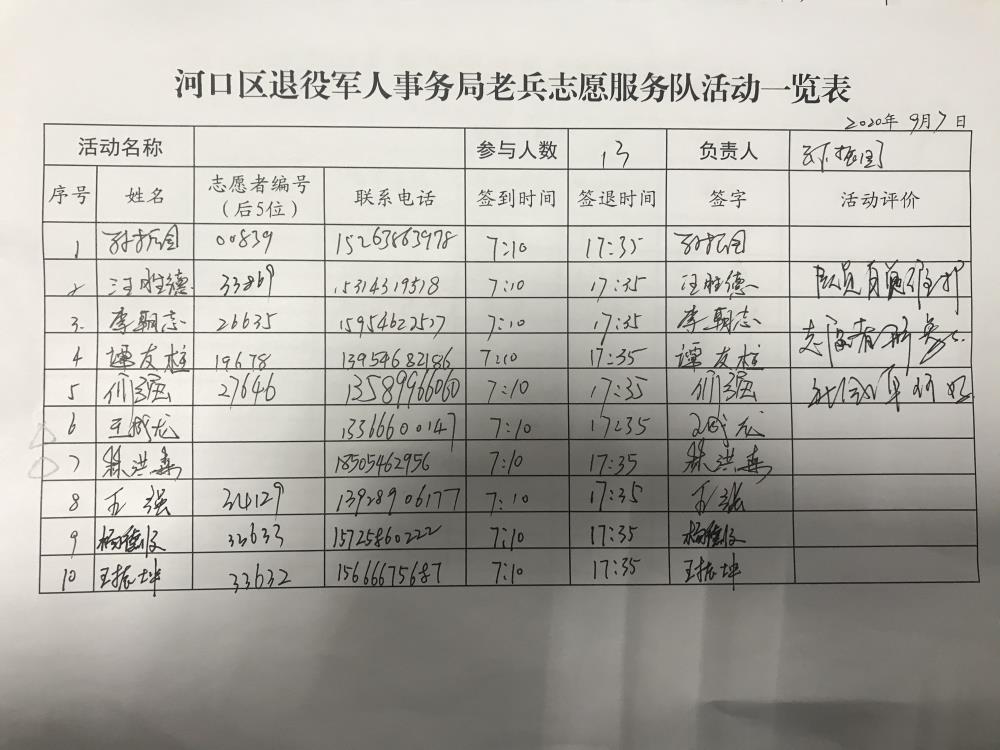 河口区退役军人事务局老兵志愿服务队活动一览表
2020年 9月7日
活动名称 参与人数 13 负责人 孙振国
序号 姓名 志愿者编号（后5位） 联系电话 签到时间 签退时间 签字 活动评价
1 孙振国 00839 15263863978 7:10 17:35 孙振国
2 汪胜德 33869 15314319518 7:10 17:35 汪胜德
3. 李朝志 26635 15954622517 7:10 17:35 李朝志
4 谭友柱 19678 13954682186 7:10 17:35 谭友柱
5 27646 7:10 17:35
6 王成龙 13366600147 7:10 17:35 王成龙
7 林洪森 18505462956 7:10 17:35 林洪森
8 王强 34129 13928906177 7:10 17:35 王强
9 33633 15725860222 7:10 17:35
10 王振坤 33632 15666675687 7:10 17:35 王振坤